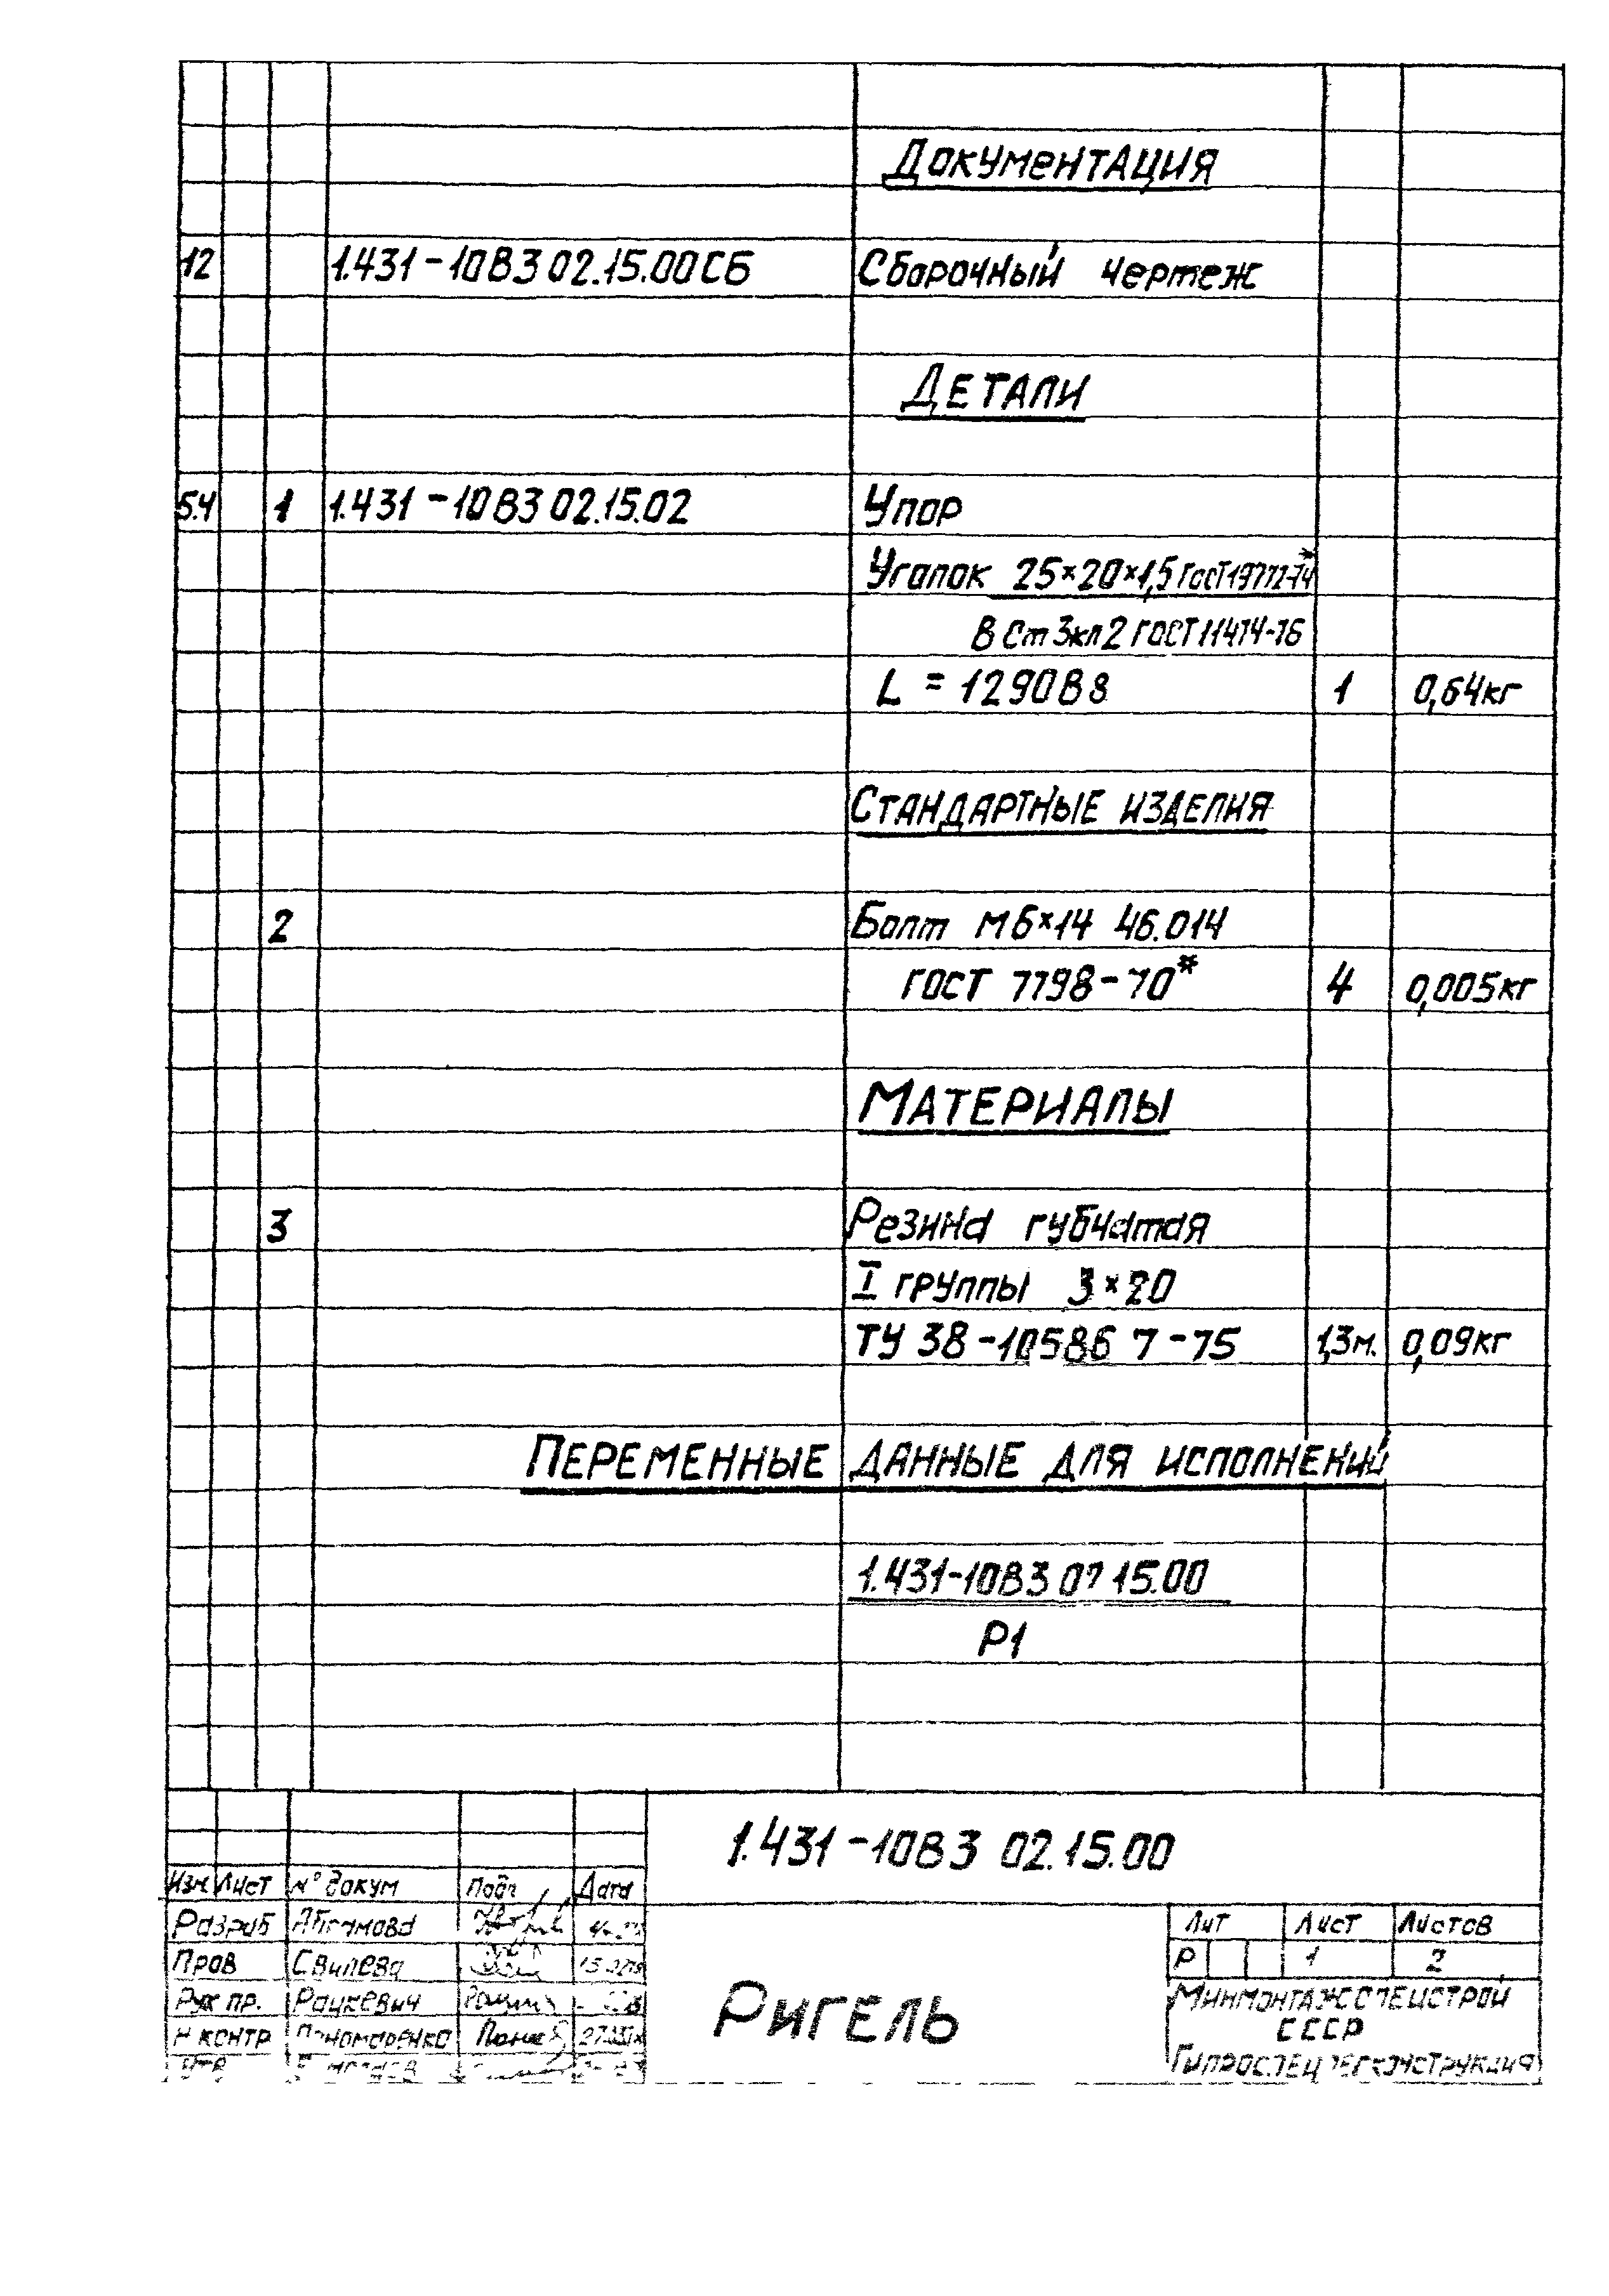 Документация
12 1.431-10 В3 02.15.00 СБ Сборочный чертеж
Детали
Б.Ч 1 1.431-10 В3 02.15.02 Упор
Уголок 25×20×1,5 ГОСТ 19772-74*
В Ст 3кп 2 ГОСТ 11474-76
L = 1290 В8 1 0,64кг
Стандартные изделия
2 Болт М6×14 46.014
ГОСТ 7798-70* 4 0,005кг
Материалы
3 Резина губчатая
I группы 3×20
ТУ 38-105867-75 1,3м. 0,09кг
Переменные данные для исполнений
1.431-10В3 02 15.00
Р1
1.431-10В3 02.15.00
Изм Лист № докум Подп Дата
Разраб Абрамова
Пров Свилева
Рук пр. Рацкевич
Н контр Пономаренко
Утв
Ригель
Лит Лист Листов
Р 1 2
Минмонтажспецстрой
СССР
Гипроспецлегконструкция